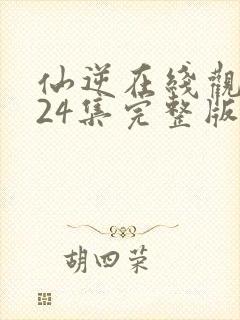 仙逆在綫觀
24集完整版
胡四荣